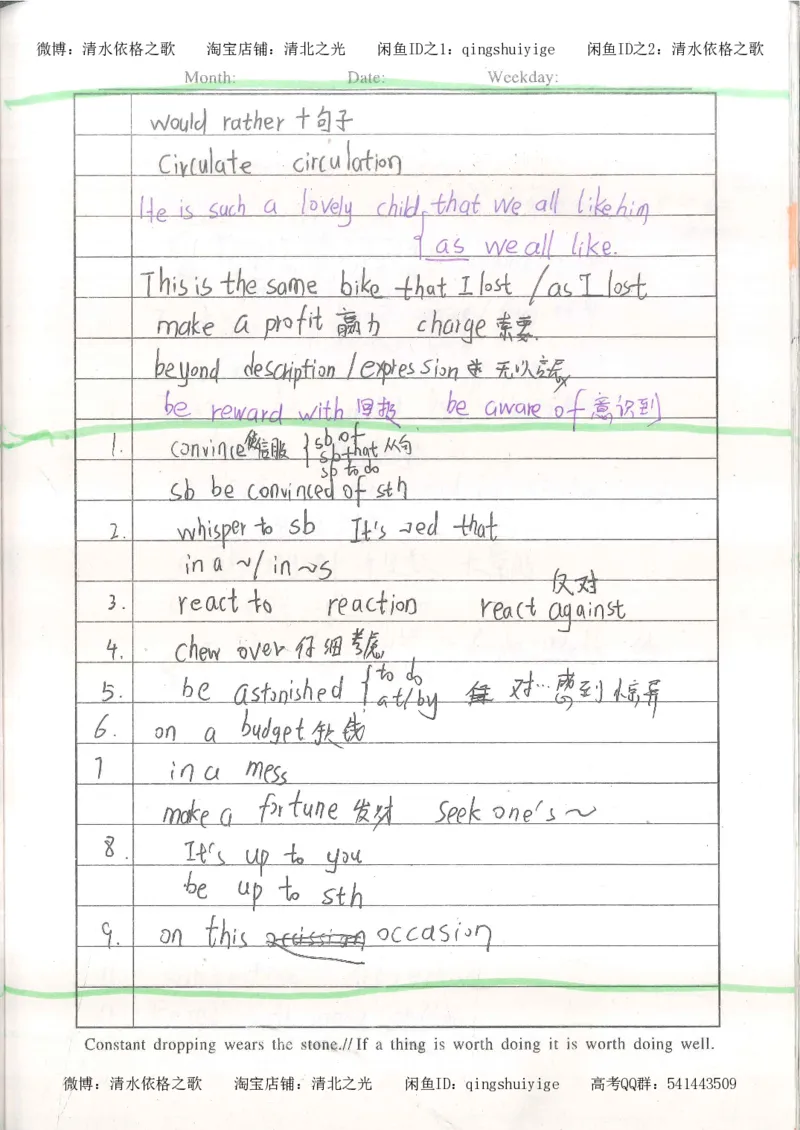 微博：清水依格之歌 淘宝店铺：清北之光 闲鱼ID之1：qingshuiyige 闲鱼ID之2：清水依格之歌
Month: Date: Weekday:
would rather 十句子
Circulate circulation
He is such a lovely child that we all like him
as we all like.
This is the same bike that I lost / as I lost
make a profit 赢力 charge 索要
beyond description / expression 无以言
be reward with 回报 be aware of 意识到
1. convince 信服 sb of
sb that 从句
sb to do
sb be convinced of sth
2. whisper to sb It's ~ed that
in a ~ / in ~s
反对
3. react to reaction react against
4. chew over 仔细考虑
5. be astonished to do
at/by 对…感到惊异
6. on a budget 缺钱
7 in a mess
make a fortune 发财 seek one's ~
8. It's up to you
be up to sth
9. on this occasion
Constant dropping wears the stone.// If a thing is worth doing it is worth doing well.
微博：清水依格之歌 淘宝店铺：清北之光 闲鱼ID：qingshuiyige 高考QQ群：541443509